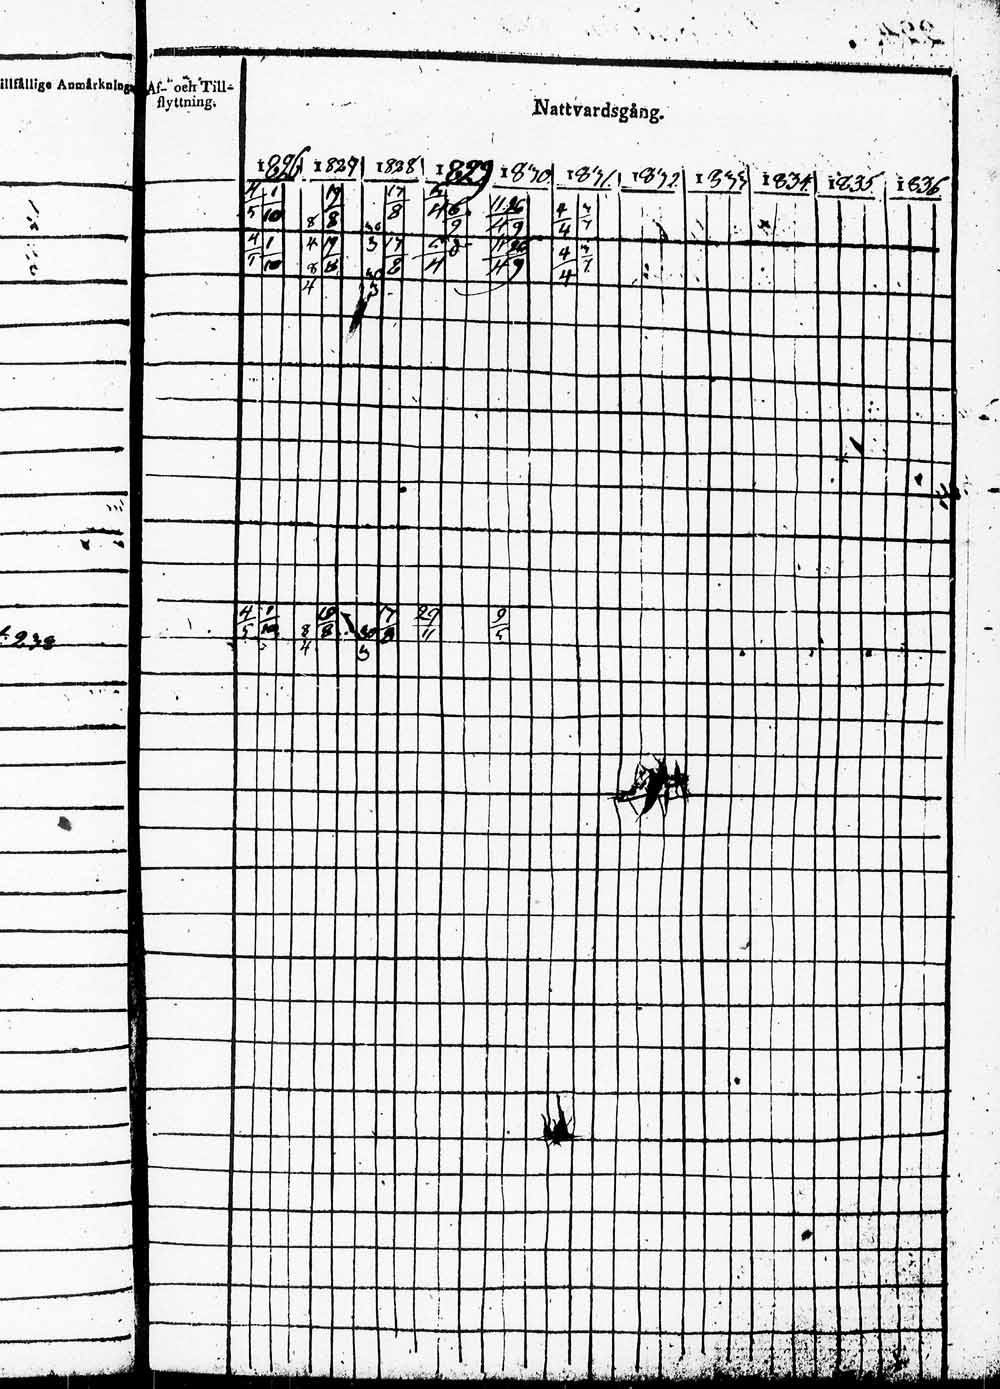 Tillfällige Anmärkningar.
Af- och Till-
flyttning.
Nattvardsgång.
1826 1827 1828 1829 1830 1831 1832 1833 1834 1835 1836
4/5 1/10 8/4 19/8 30/3 17/8 6/9 11/4 26/9 4/4 3/7
4/5 1/10 8/4 19/8 30/3 17/8 11/4 26/9 4/4 3/7
4/5 1/10 8/4 19/8 30/3 17/8 29/11 9/5
238